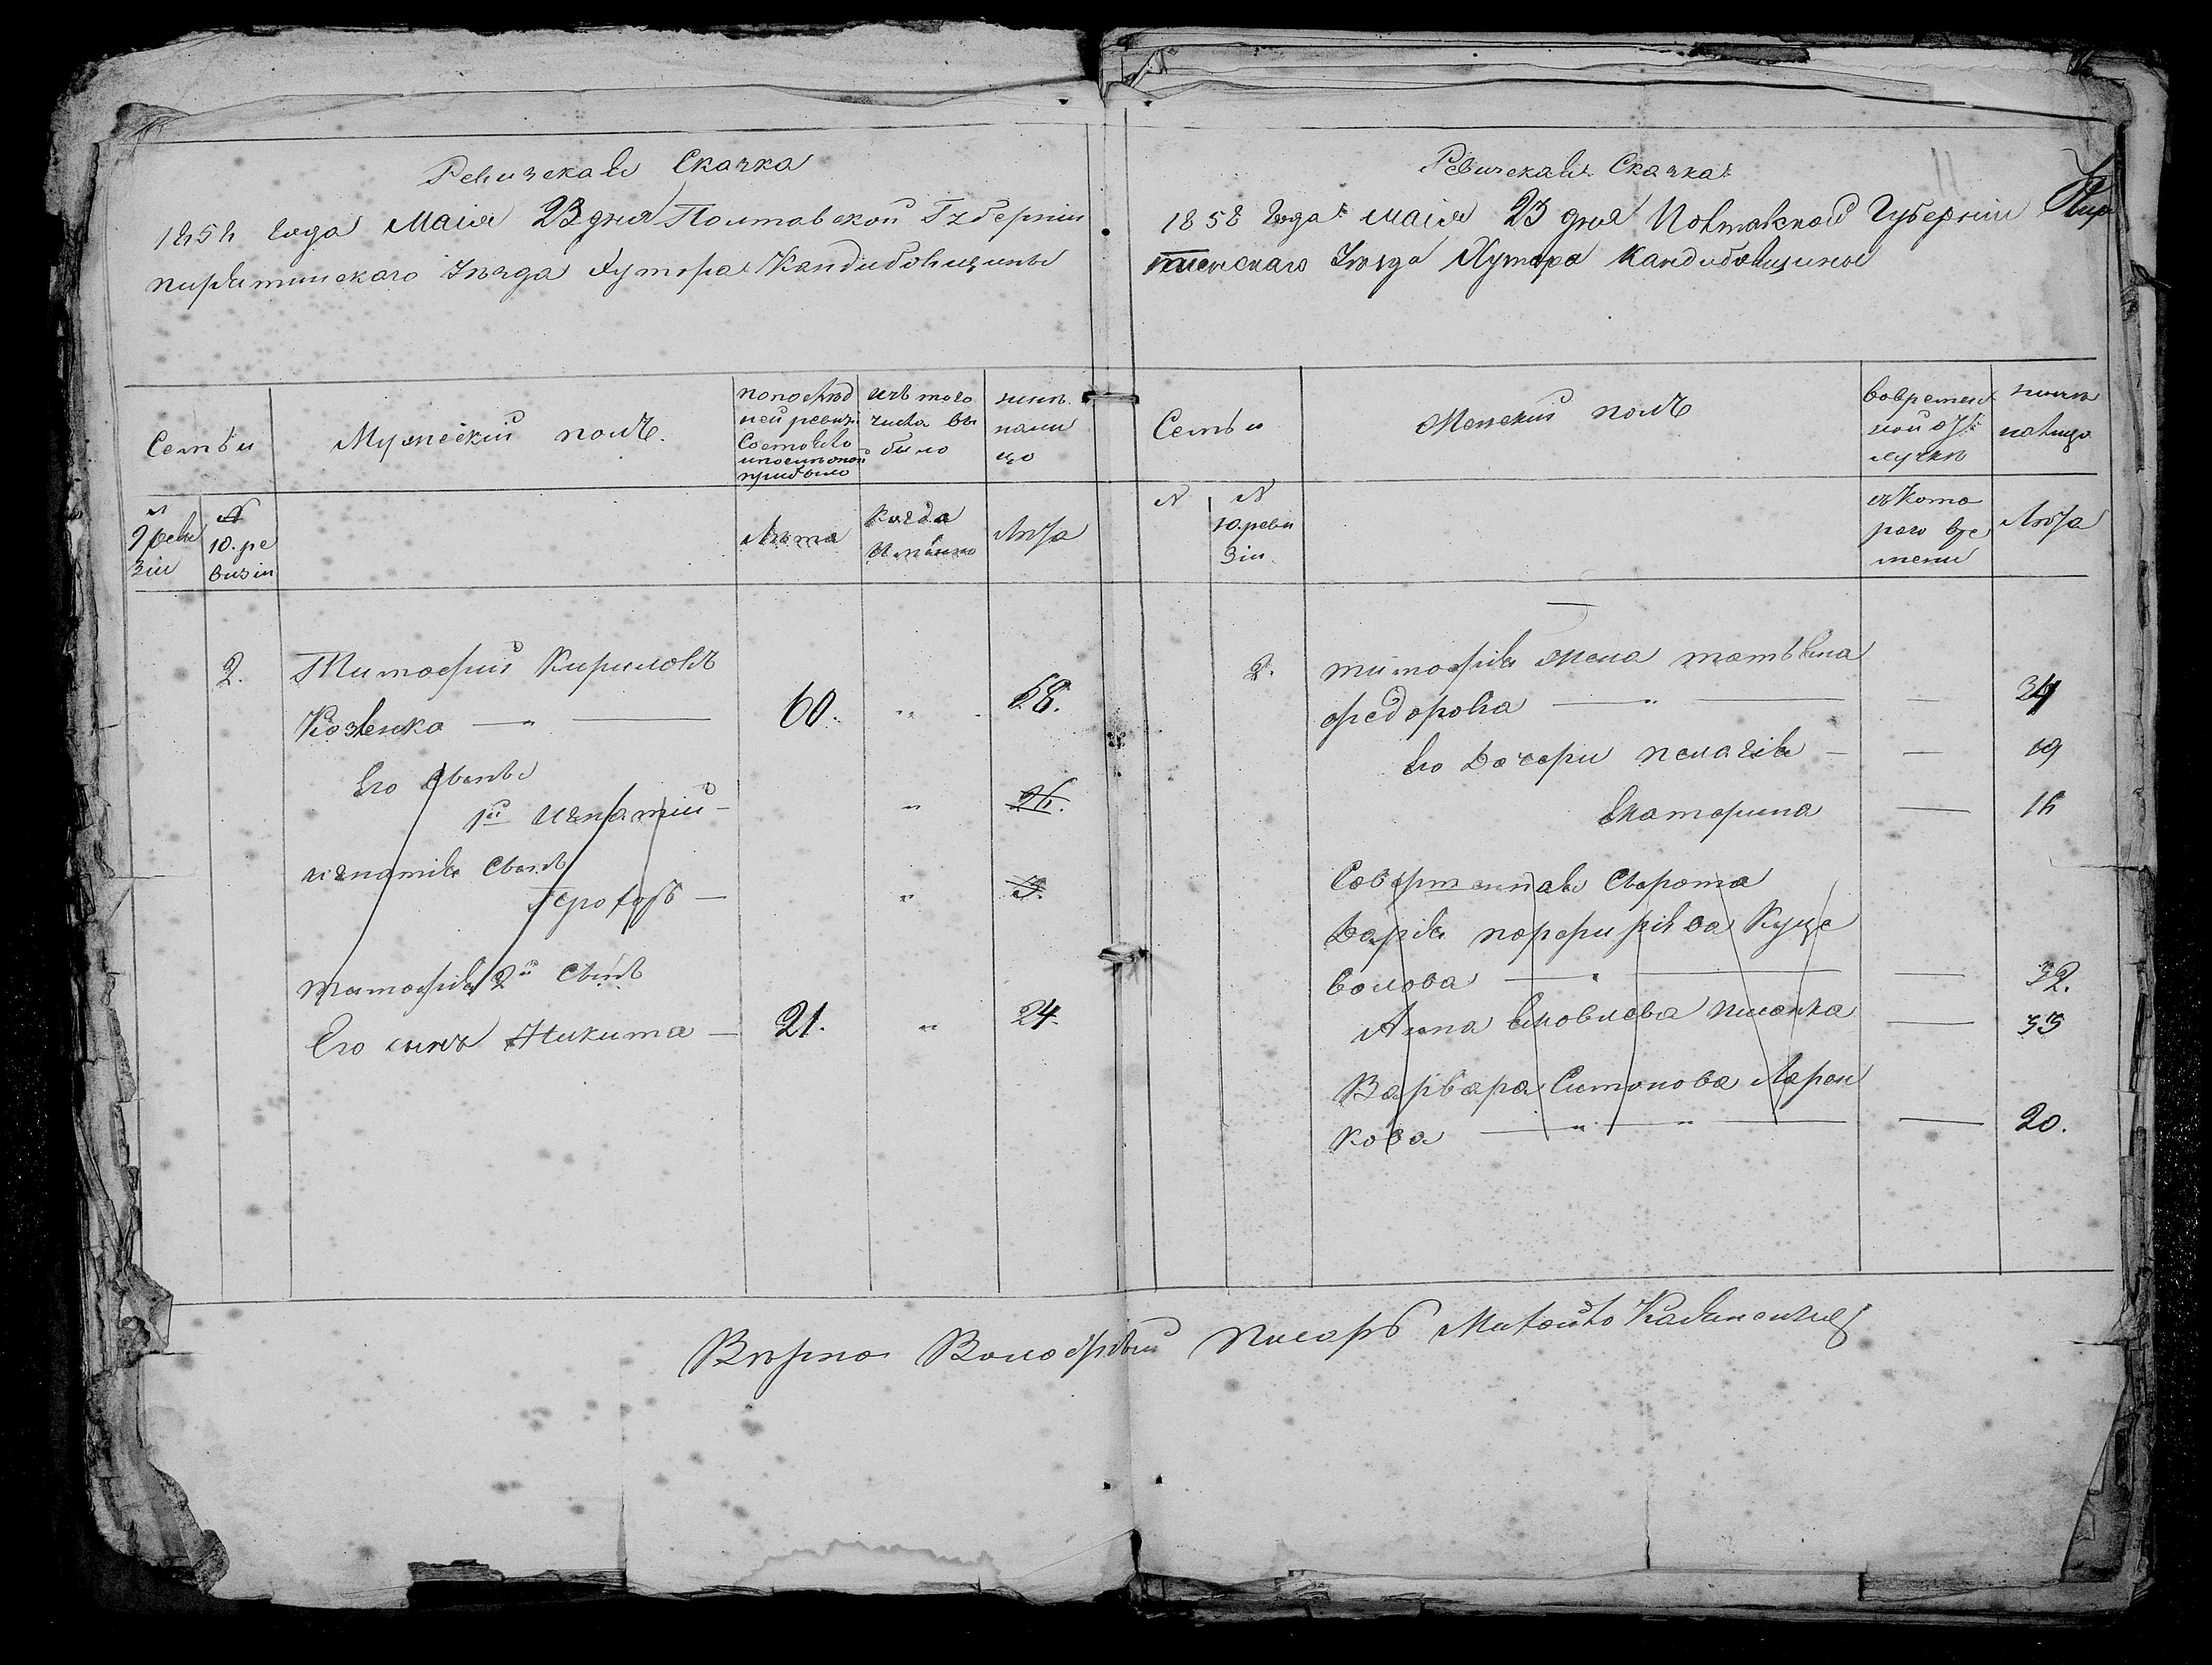 Ревизская Сказка
1858 года Маія 23 дня Полтавской Губерніи
пирятинскаго Уѣзда Хутора Кандибовщины
Семьи
Мужескій полъ.
попослѣд
ней ревизіи
Состояло
и послѣ оной
прибыло
изъ того
числа вы
было
нынѣ
на ли
цо
№
9 реви
зіи
№
10. ре
визіи
Лѣта
Когда
Именно
Лѣта
2. Тимофій Кириловъ
Козенко — " — 60. " 58.
Его сынъ
1й Игнатій — " 26.
игнатія сынъ
— " 3.
тимофія 2й сынъ
Его сынъ Никита — 21. " 24.
Ревизская Сказка
11
1858 года маія 23 дня Полтавской Губерніи Пир
тинскаго Уѣзда Хутора Кандибовщины
Семьи
Женскій полъ
вовремен
ной от
лучкѣ
нынѣ
налицо
№
№
10. реви
зіи
съ кото
раго вре
мени
Лѣта
2. тимофія жена
федорова — " — —
его дочери пелагія — — 19
Екатерина — 16
сирота
Дарія порфиріева Куце
волова — " — — 32.
Анна — 35
Варвара Симонова Ларен
кова — " — " — — 20.
Вѣрно Волостный писарь